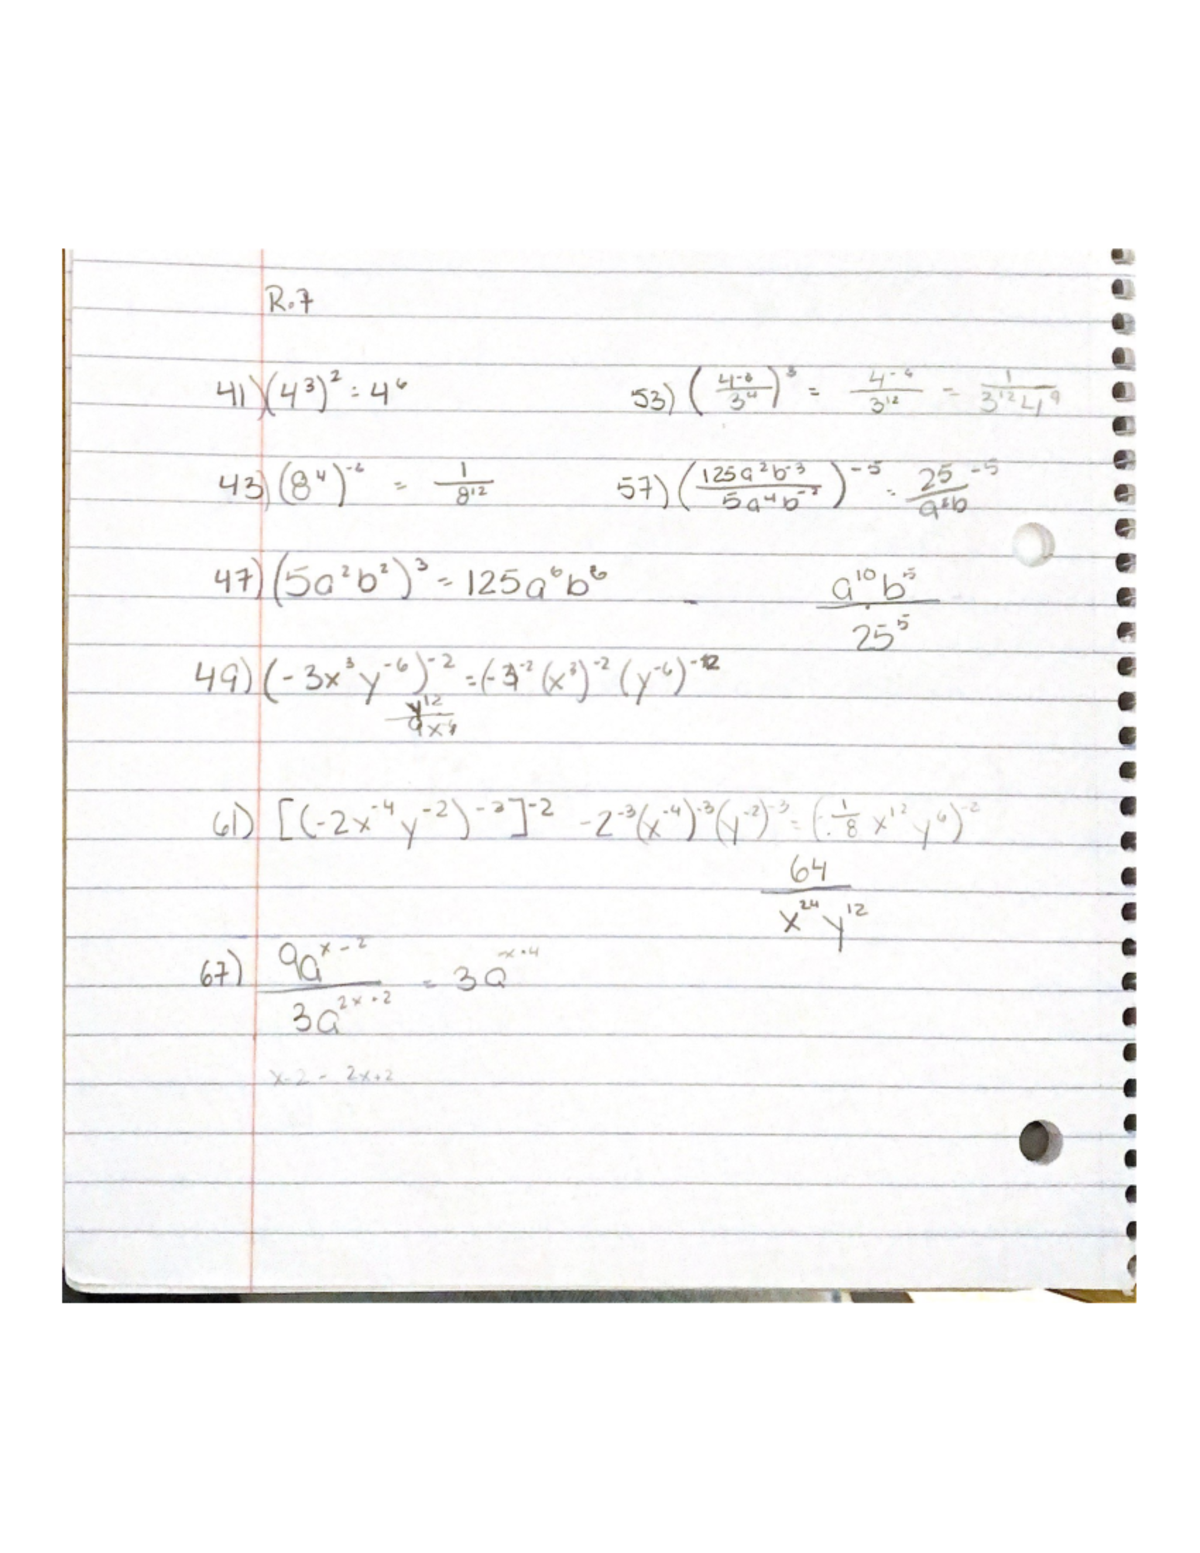 R.7
41) (4³)² = 4⁶
53) (4⁻³/3⁴)³ = 4⁻⁶/3¹² = 1/3¹²4⁹
43) (8⁴)⁻² = 1/8¹²
57) (125a²b⁻³/5a⁴b⁻²)⁻⁵ = 25⁻⁵/a²b
47) (5a²b²)³ = 125a⁶b⁶
a¹⁰b⁵/25⁵
49) (-3x³y⁻⁶)⁻² = (-3⁻²(x³)⁻²(y⁻⁶)⁻¹²
y¹²/9x⁶
61) [(-2x⁻⁴y⁻²)⁻³]⁻² -2⁻³(x⁻⁴)⁻³(y⁻²)⁻³ = (-1/8 x¹²y⁶)⁻²
64/x²⁴y¹²
67) 9aˣ⁻²/3a²ˣ⁺² = 3a⁻ˣ⁻⁴
x-2 - 2x+2